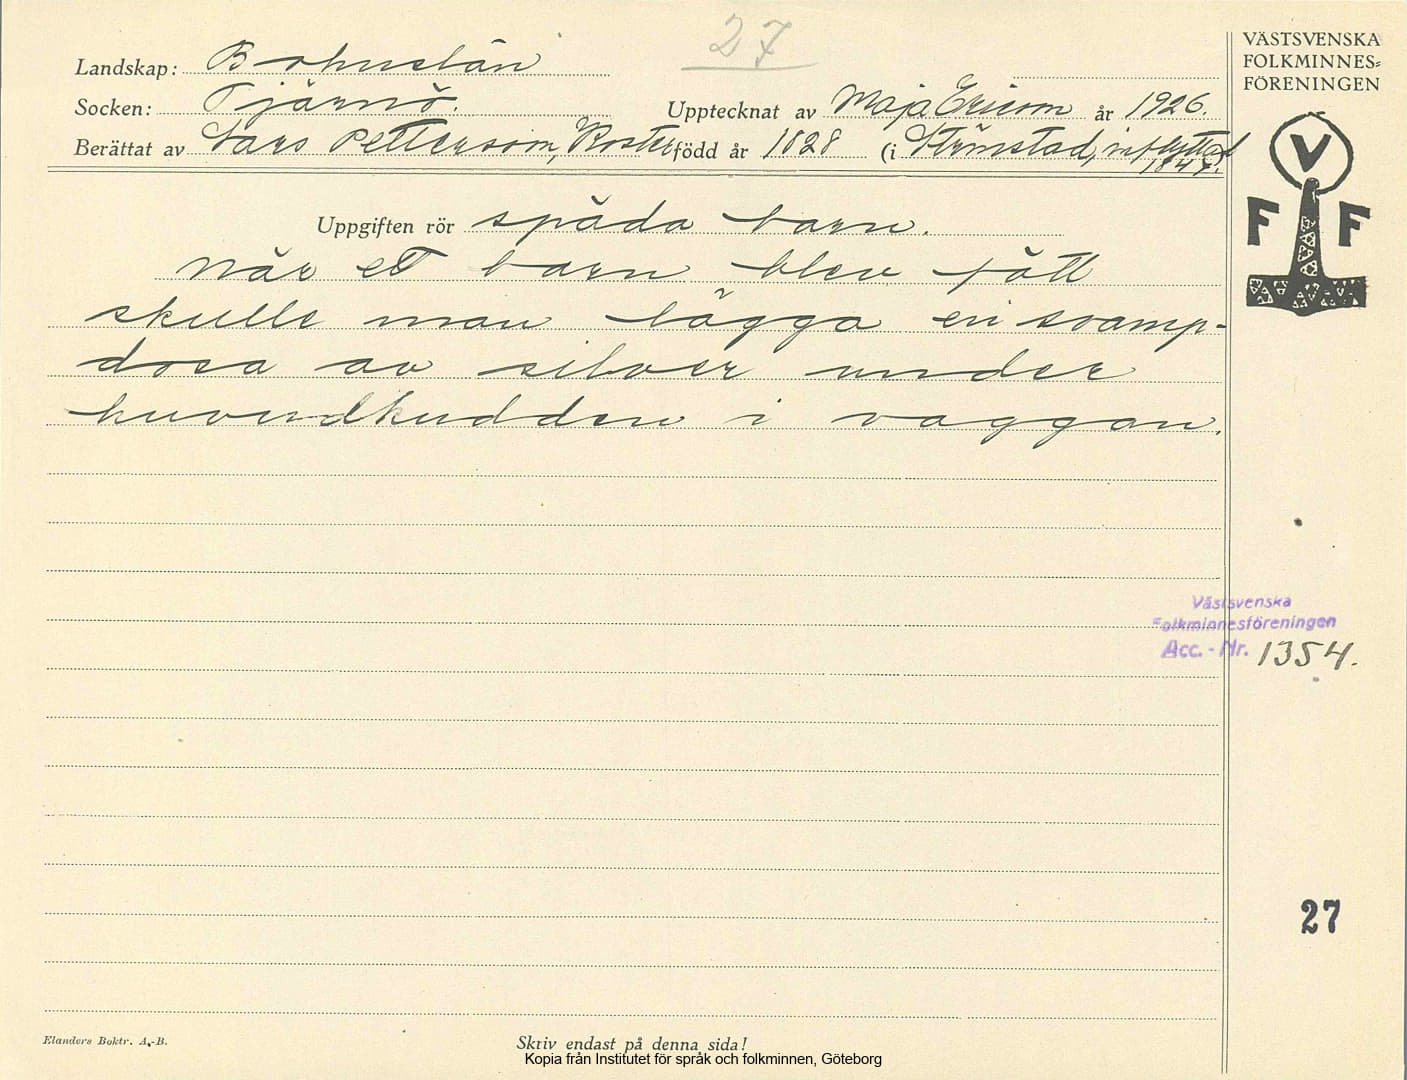 27
VÄSTSVENSKA
FOLKMINNES=
FÖRENINGEN
V
F F
Landskap: Bohuslän
Socken: Tjärnö. Upptecknat av Maja Ericson år 1926.
Berättat av Lars Pettersson, Koster född år 1828 (i Strömstad, inflyttad
1847).
Uppgiften rör späda barn.
När ett barn blev fött
skulle man lägga en svamp-
dosa av silver under
huvudkudden i vaggan.
Västsvenska
Folkminnesföreningen
Acc. - Nr. 1354.
27
Elanders Boktr. A.-B.
Skriv endast på denna sida!
Kopia från Institutet för språk och folkminnen, Göteborg